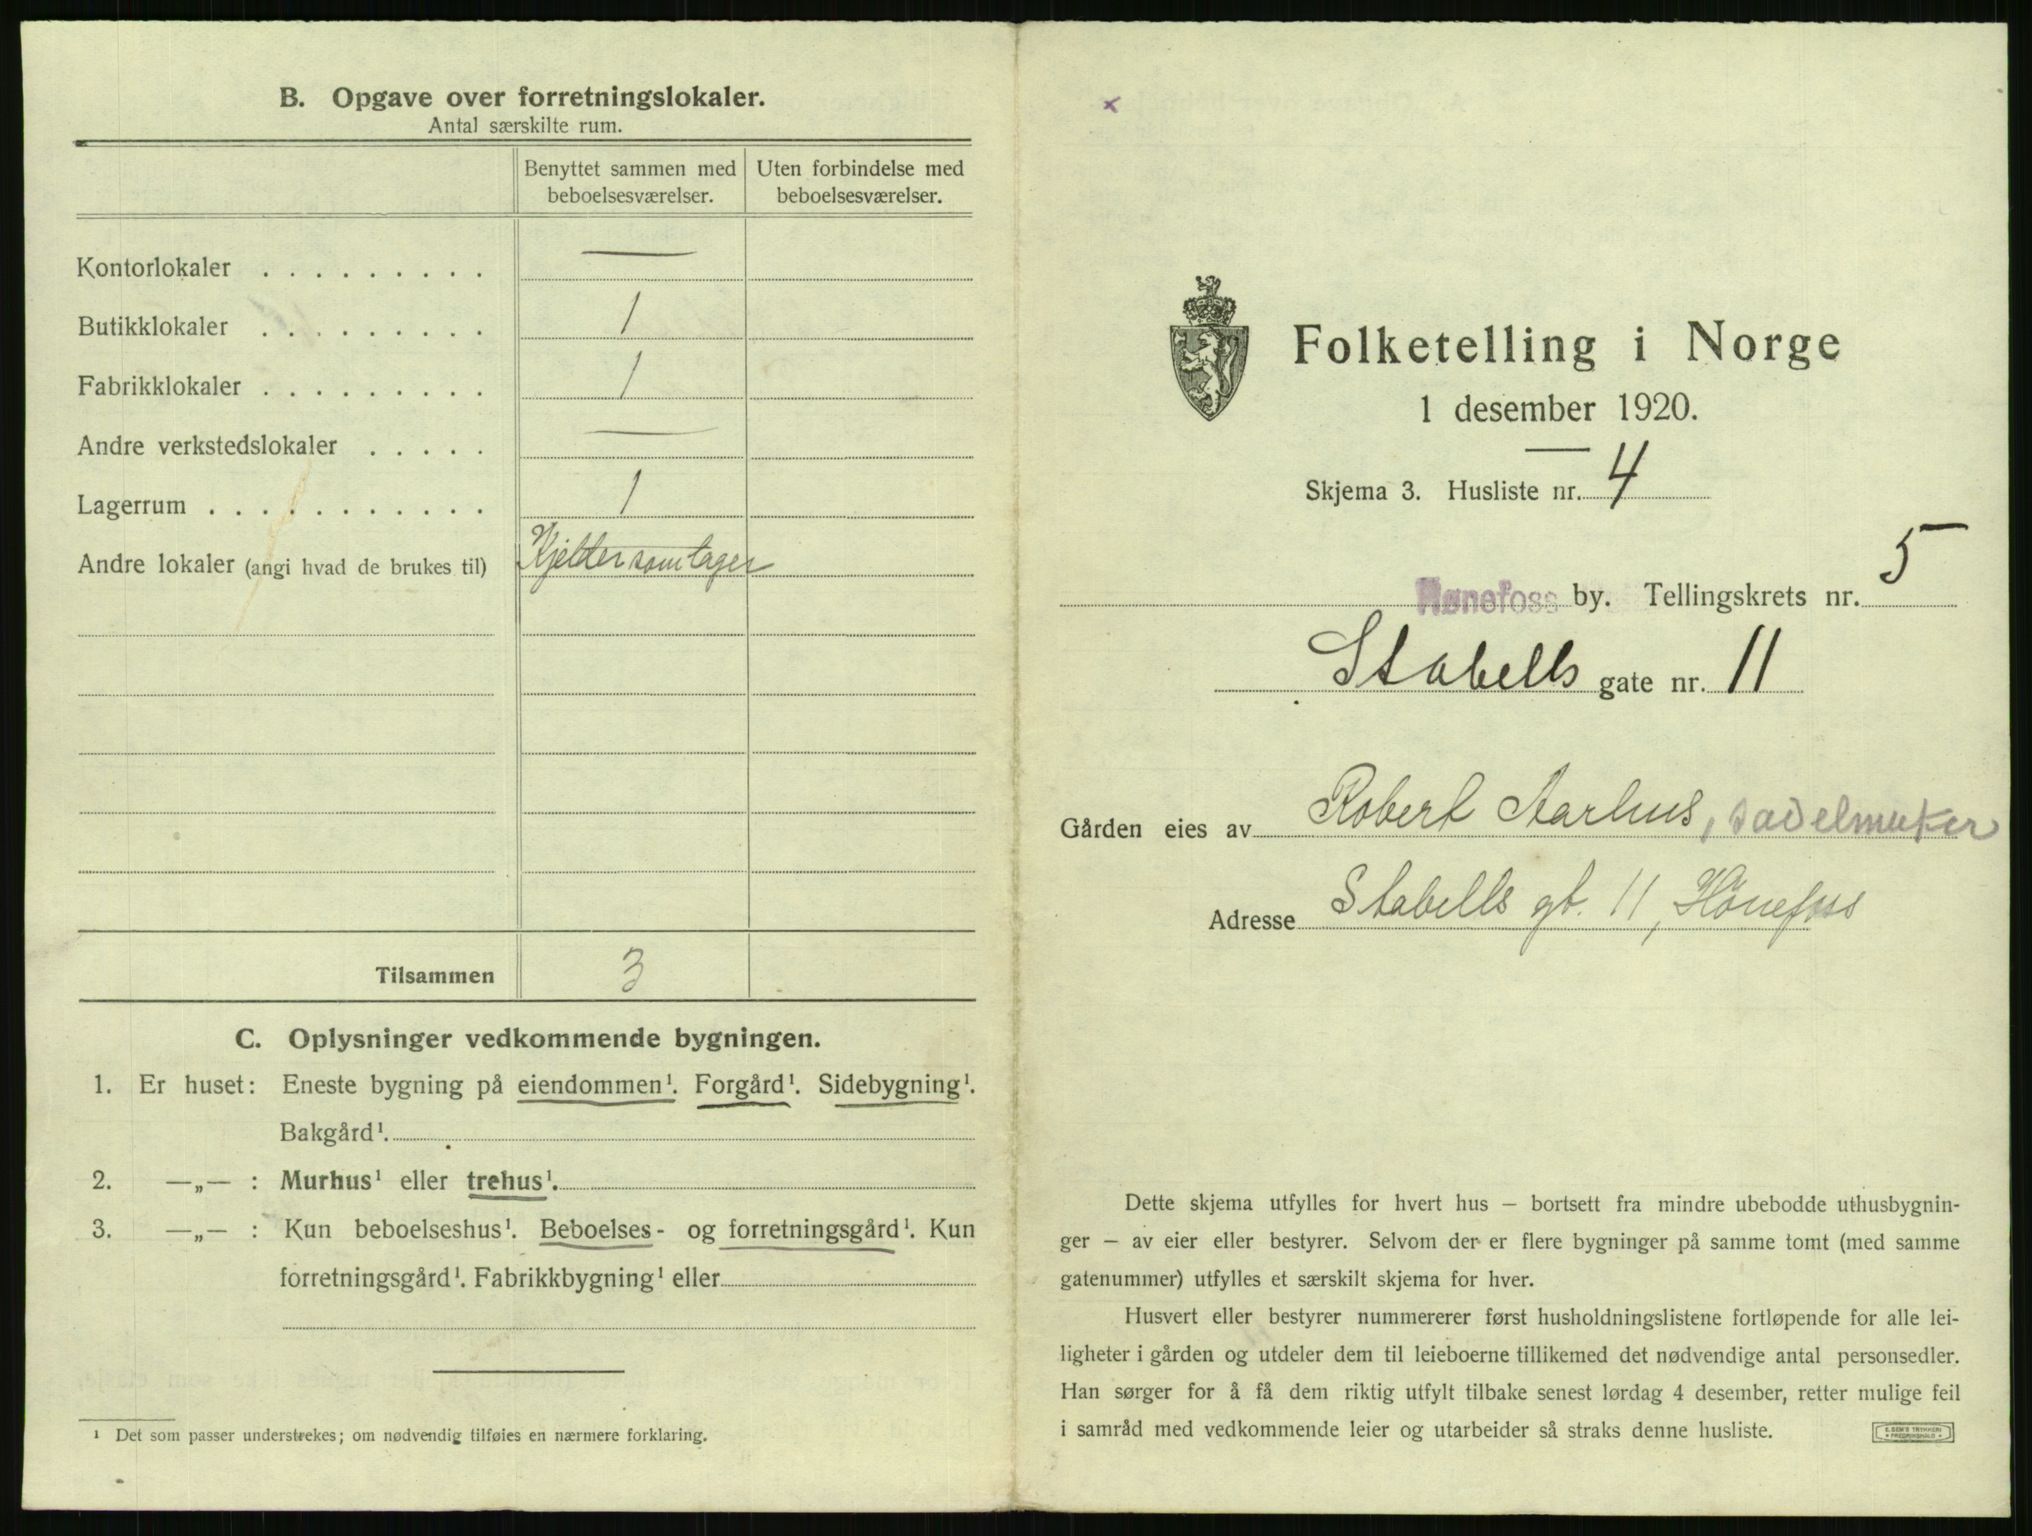 B. Opgave over forretningslokaler.
Antal særskilte rum.
Benyttet sammen med beboelsesværelser.
Uten forbindelse med beboelsesværelser.
Kontorlokaler . . . . . . . . . —
Butikklokaler . . . . . . . . . 1
Fabrikklokaler . . . . . . . . . 1
Andre verkstedslokaler . . . . . —
Lagerrum . . . . . . . . . . . . 1
Andre lokaler (angi hvad de brukes til) Kjelder som lager
Tilsammen 3
C. Oplysninger vedkommende bygningen.
1. Er huset: Eneste bygning på eiendommen¹. Forgård¹. Sidebygning¹.
Bakgård¹.
2. —„— : Murhus¹ eller trehus¹.
3. —„— : Kun beboelseshus¹. Beboelses- og forretningsgård¹. Kun
forretningsgård¹. Fabrikkbygning¹ eller
¹ Det som passer understrekes; om nødvendig tilføies en nærmere forklaring.
x
Folketelling i Norge
1 desember 1920.
Skjema 3. Husliste nr. 4
Hønefoss by. Tellingskrets nr. 5
Stabells gate nr. 11
Gården eies av Robert Aarhus, sadelmaker
Adresse Stabells gt. 11, Hönefoss
Dette skjema utfylles for hvert hus — bortsett fra mindre ubebodde uthusbygnin-
ger — av eier eller bestyrer. Selvom der er flere bygninger på samme tomt (med samme
gatenummer) utfylles et særskilt skjema for hver.
Husvert eller bestyrer nummererer først husholdningslistene fortløpende for alle lei-
ligheter i gården og utdeler dem til leieboerne tillikemed det nødvendige antal personsedler.
Han sørger for å få dem riktig utfylt tilbake senest lørdag 4 desember, retter mulige feil
i samråd med vedkommende leier og utarbeider så straks denne husliste.
E. SEM'S TRYKKERI
FREDRIKSHALD